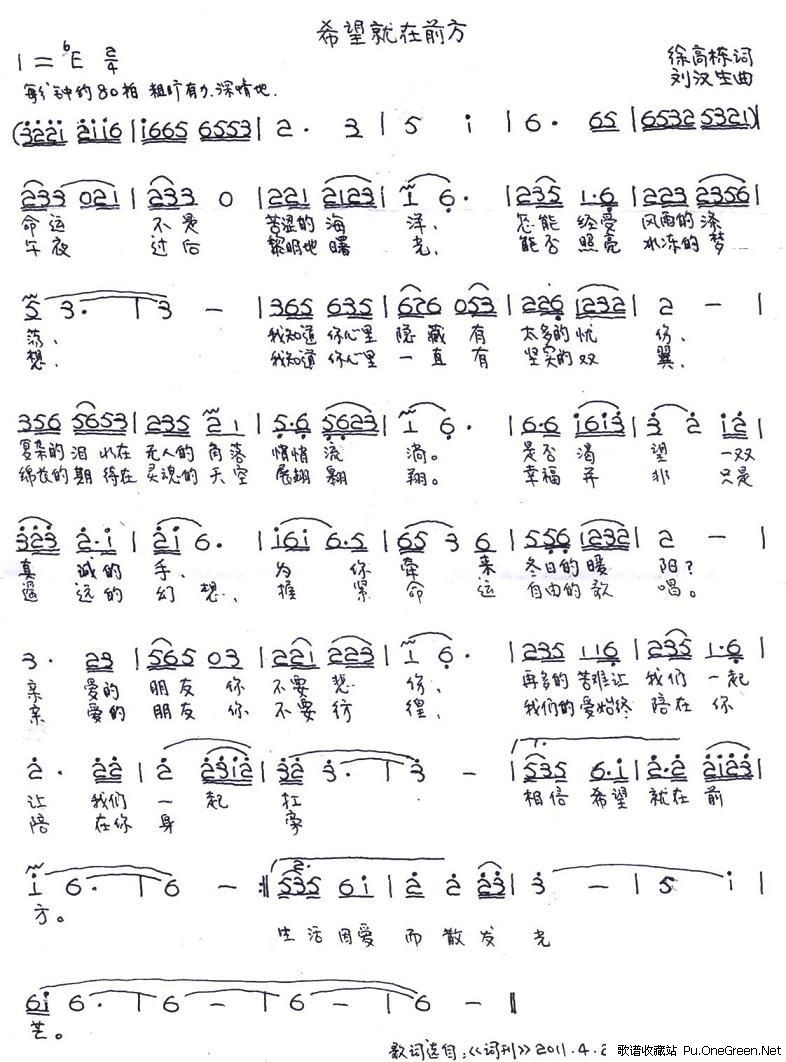 希望就在前方
1=bE 2/4
徐高栋词
每分钟约80拍 粗旷有力.深情地.
刘汉生曲
(3221 2116 | 1665 6553 | 2. 3 | 5 1 | 6. 65 | 6532 5321) |
233 021 | 233 0 | 221 2123 | 1 6. | 235 1·6 | 223 2356 |
命运 不是 苦涩的海 洋, 怎能 经受 风雨的涤
午夜 过后 黎明地曙 光, 能否 照亮 冰冻的梦
5 3. | 3 - | 365 635 | 676 053 | 226 1232 | 2 - |
荡, 我知道 你心里 隐藏 有 太多的忧 伤,
想, 我知道 你心里 一直有 坚实的双 翼,
356 5653 | 235 2 1 | 5·6 5623 | 1 6. | 6·6 1613 | 3 2 12 |
复杂的泪 水在 无人的 角落 悄悄 流 淌。 是否 渴 望 一双
绵长的期 待在 灵魂的 天空 展翅 翱 翔。 幸福 并 非 只是
323 2·1 | 21 6. | 161 6·5 | 65 3 6 | 556 1232 | 2 - |
真 诚的 手, 为 你 牵 来 冬日的暖 阳?
遥 远的 幻 想, 推 紧 命 运 自由的歌 唱。
3. 23 | 565 03 | 221 223 | 1 6. | 235 116 | 235 1·6 |
亲 爱的 朋友 你 不要 悲 伤, 再多的 苦难让 我们 一起
亲 爱的 朋友 你 不要 彷 徨, 我们的 爱始终 陪在 你
2. 22 | 2 2312 | 32 3. | 3 - | 535 6·1 | 2·2 2123 |
让 我们 一 起 扛 相信 希望 就在 前
陪 在你 身 旁
1 6. | 6 - :‖ 535 61 | 2 2 23 | 3 - | 5 1 |
方。
生 活 因爱 而 散 发 光
61 6. | 6 - | 6 - | 6 - ‖
芒。
歌词选自:《词刊》2011.4.2
歌谱收藏站 Pu.OneGreen.Net